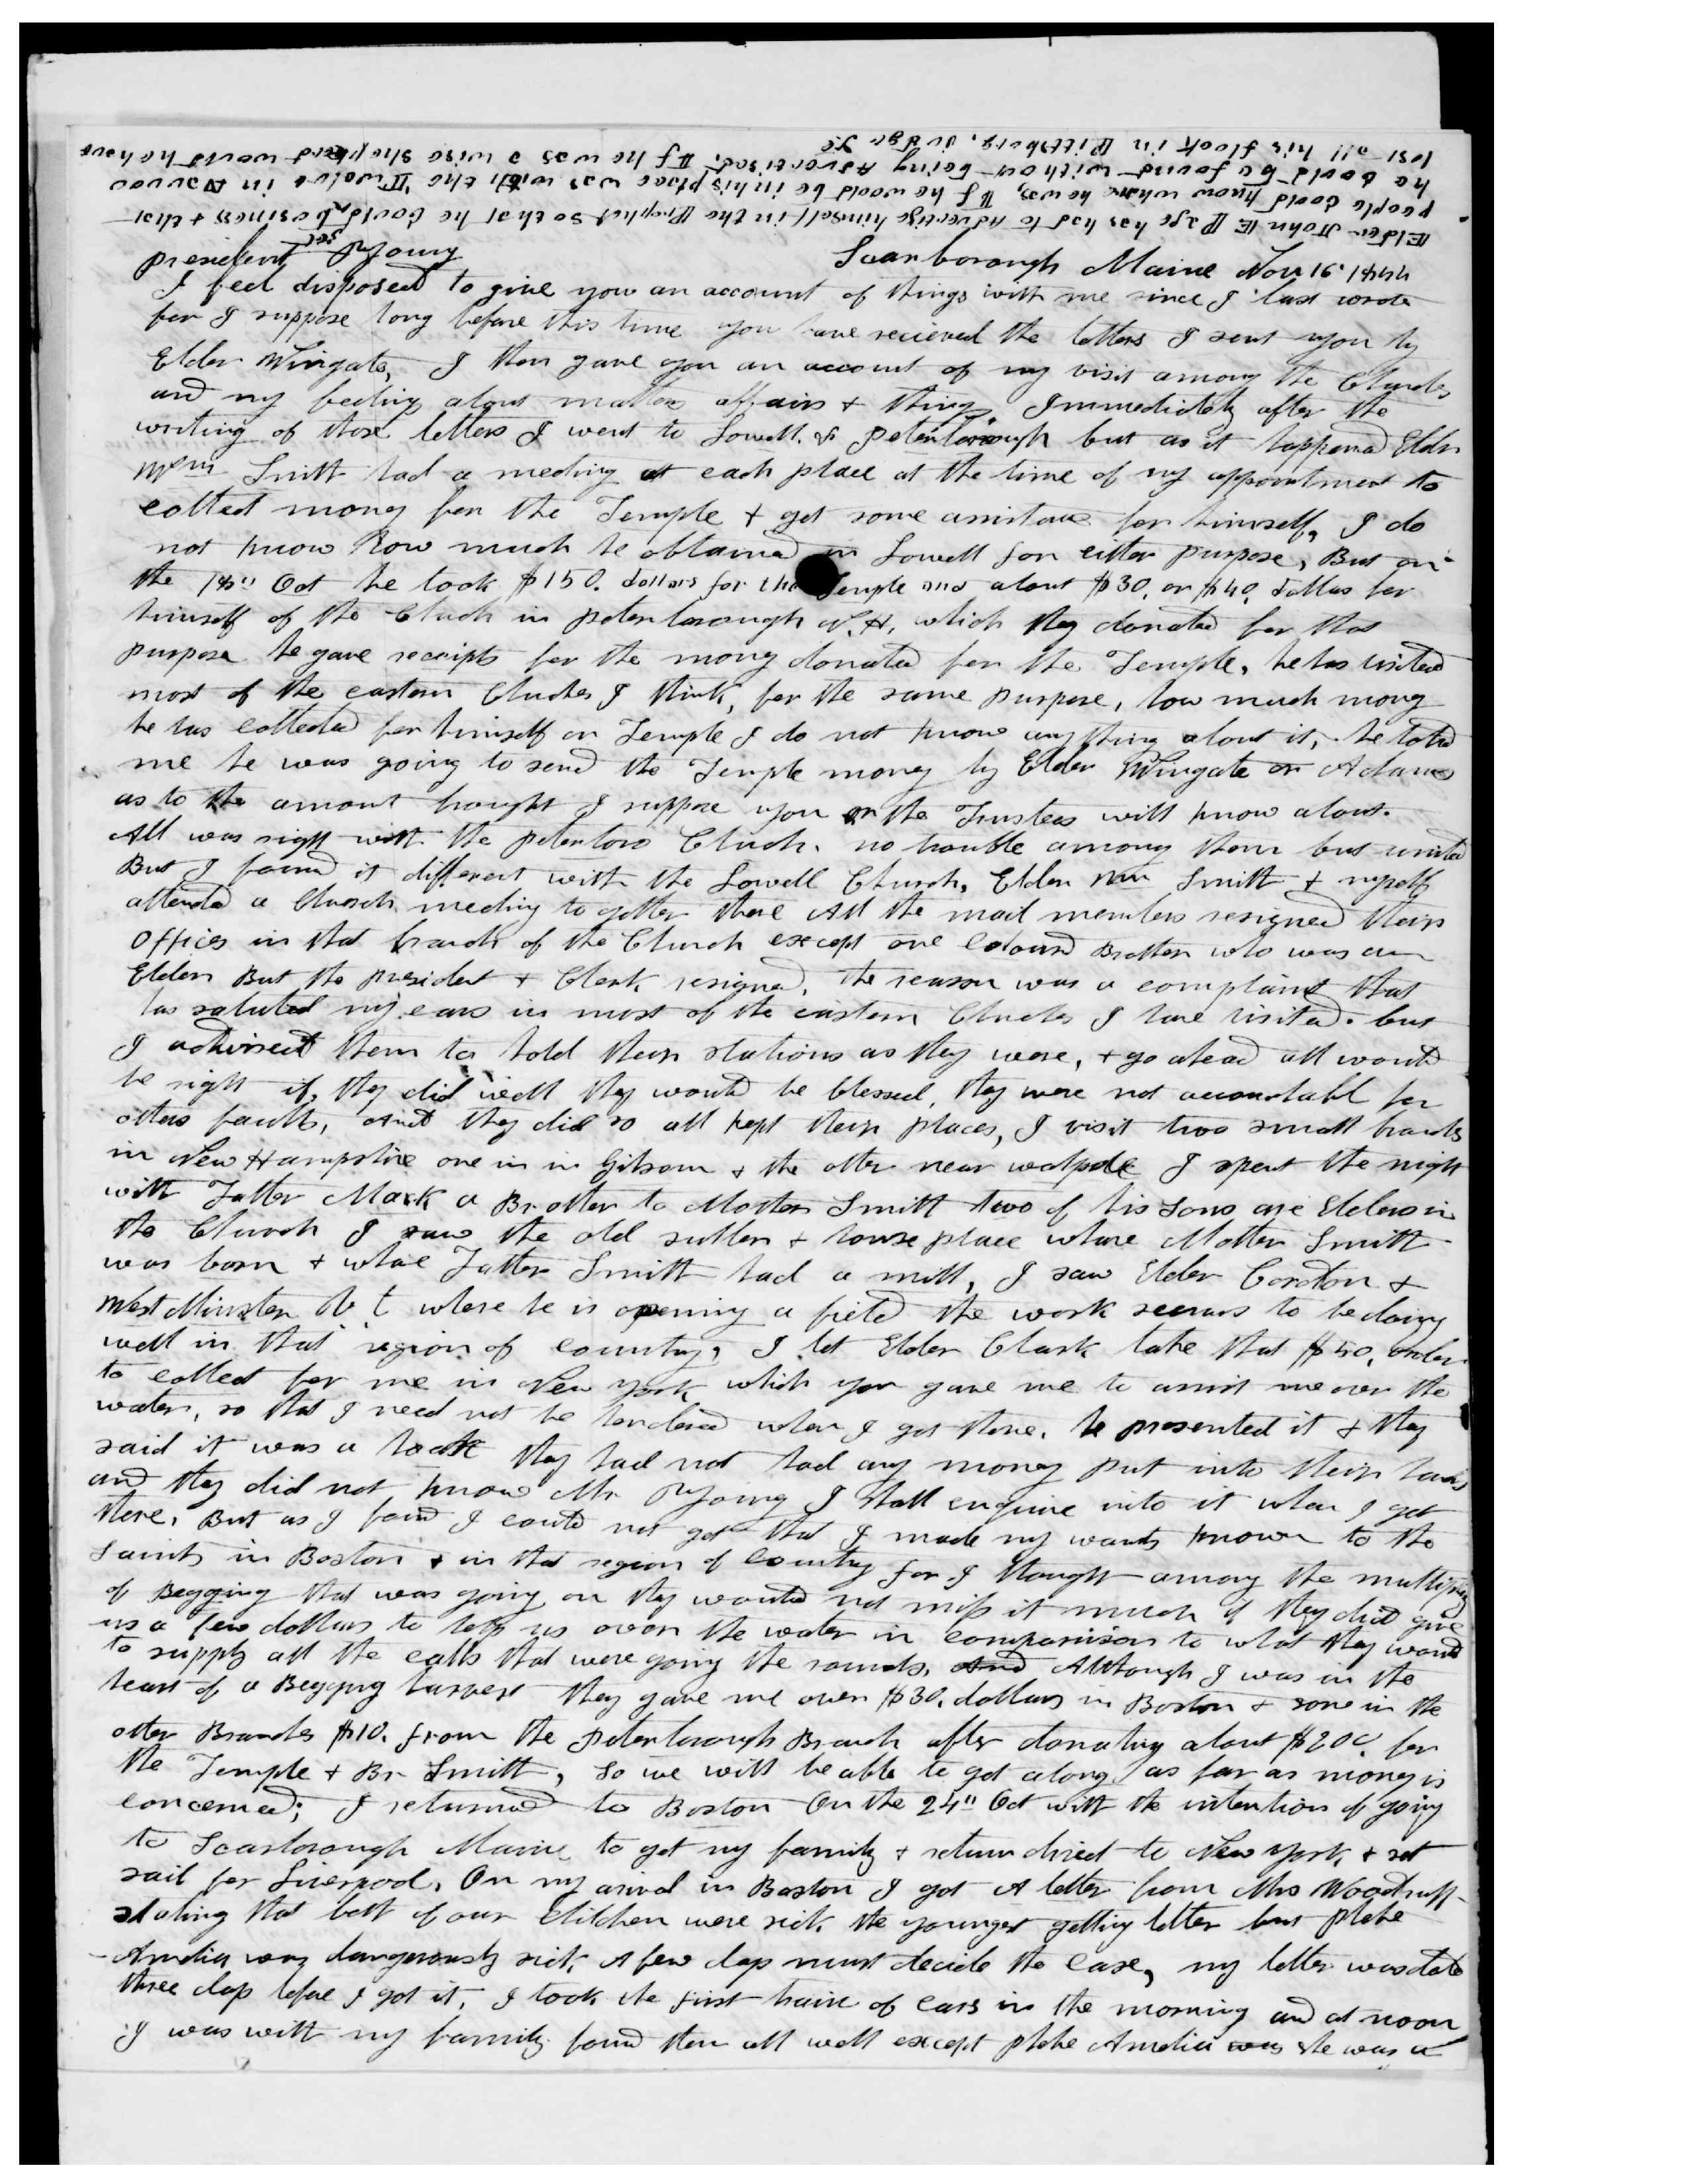 Elder John E Page has had to Advertise himself in the Prophet so that he could do business & that
people could know where he was, If he would be in his place was with the Twelve in Nauvoo
he could be found without being Advertised. If he was a wise shepherd would he have
lost all his flock in Pittsburg, Judge Ye
Scarborough Maine Nov 16. 1844
President B Young
I feel disposed to give you an account of things with me since I last wrote
for I suppose long before this time you have recieved the letters I sent you by
Elder Wingate, I then gave you an account of my visit among the Churches
and my feelings about matters affairs & things. Immediately after the
writing of those letters I went to Lowell. & Peterborough but as it happened Elder
Wm Smith had a meeting at each place at the time of my appointment to
collect money for the Temple & get some assistance for himself, I do
not know how much he obtained in Lowell for either purpose, But on
the 18" Oct he took $150. dollars for the Temple and about $30. or $40. dollars for
himself of the Church in peterborough N.H. which they donated for that
purpose he gave receipts for the money donated for the Temple, he has visited
most of the eastern Churches I think, for the same purpose, how much money
he has collected for himself or Temple I do not know any thing about it, he told
me he was going to send the Temple money by Elder Wingate or Adams
as to the amount brought I suppose you or the Trustees will know about.
All was right with the peterboro Church. no trouble among them but united
But I found it different with the Lowell Church, Elder Wm Smith & myself
attended a Church meeting to gether there All the mail members resigned their
offices in that branch of the Church except one Coloured Brother who was an
Elder But the president & Clerk resigned, the reason was a complaint that
has saluted my ears in most of the eastern Churches I have visited. but
I advised them to hold their stations as they were, & go ahead all would
be right if they did well they would be blessed, they were not accountabl for
others faults, And they did so all kept their places, I visit two small branchs
in New Hampshire one in in Gilsom & the other near walpole I spent the night
with Father Mack a Brother to Mother Smith two of his Sons are Elders in
the Church I saw the old suller & house place whare Mother Smith
was born & whare Father Smith had a mill, I saw Elder Cordon &
West Minster V t where he is opening a field the work seems to be doing
well in that region of country, I let Elder Clark take that $50. order
to collect for me in New York which you gave me to assist me over the
water, so that I need not be hendered when I got there. he presented it & they
said it was a hoax they had not had any money put into their hands
and they did not know Mr Young I shall enquire into it when I get
there. But as I found I could not get that I made my wants known to the
Saints in Boston & in that region of Country for I thought among the multiplicity
of Begging that was going on they would not miss it much if they did give
us a few dollars to help us over the water in comparison to what they would
to supply all the calls that were going the rounds. And Although I was in the
hear of a Begging harvest they gave me over $30. dollars in Boston & some in the
other Branches $10. from the Peterborough Branch after donating about $200. for
the Temple & Br Smith, So we will be able to get along as far as money is
concerned; I returned to Boston On the 24" Oct with the intention of going
to Scarborough Maine to get my family & return direct to New York & set
sail for Liverpool. On my arival in Boston I got A letter from Mrs Woodruff
stating that both of our Children were sick the younger getting better but phebe
Amelia was dangerously sick A few days must decide the Case, my letter was date
three days before I got it. I took the first train of Cars in the morning and at noon
I was with my family found them all well except phebe Amelia was she was a